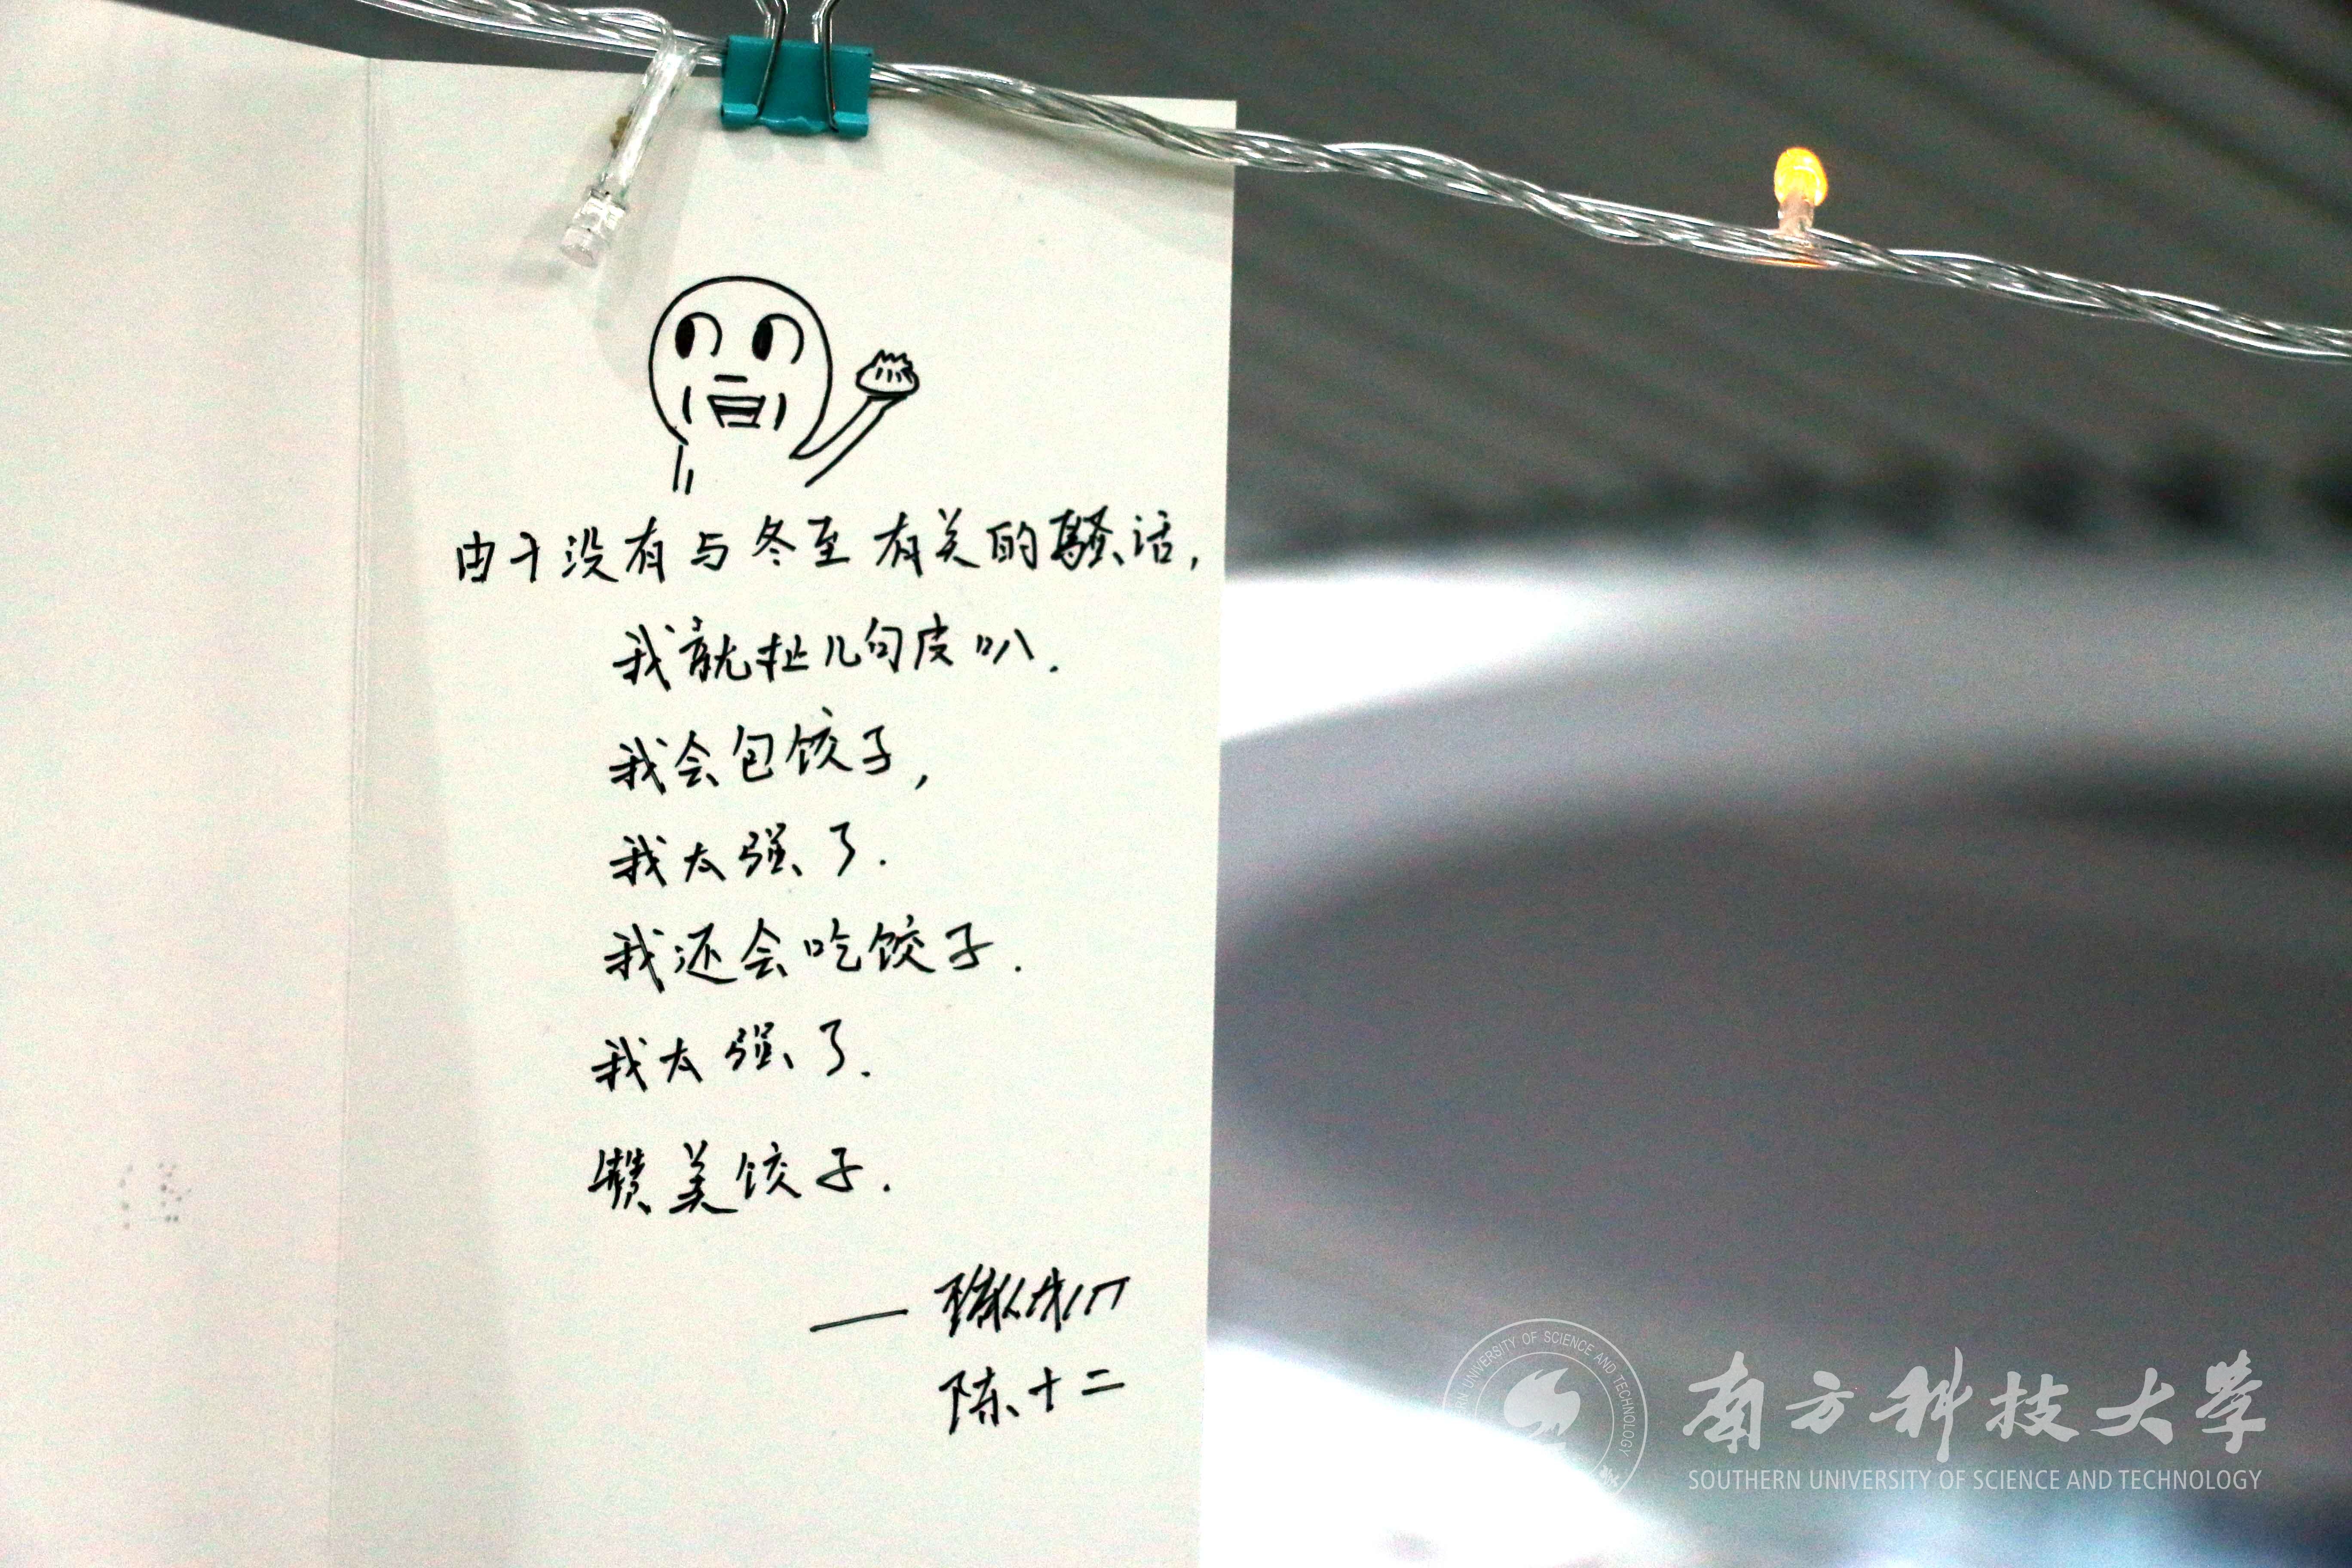 由于没有与冬至有关的骚话，
我就扯几句皮叭.
我会包饺子，
我太强了.
我还会吃饺子.
我太强了.
赞美饺子.
陈十二
南方科技大学
SOUTHERN UNIVERSITY OF SCIENCE AND TECHNOLOGY